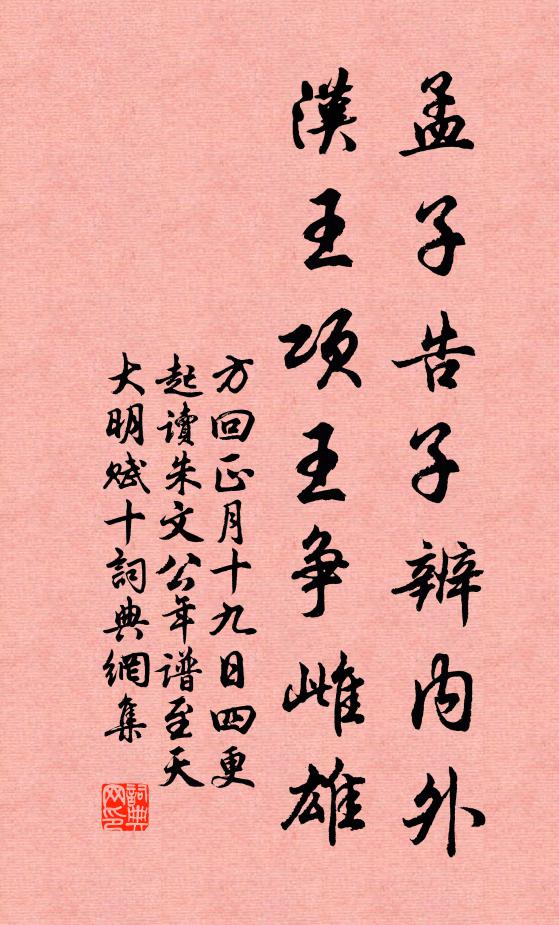 孟子告子辨内外
漢王项王争雌雄
方回正月十九日四更
起讀朱文公年谱至天
大明赋十詞典網集
詞典网印